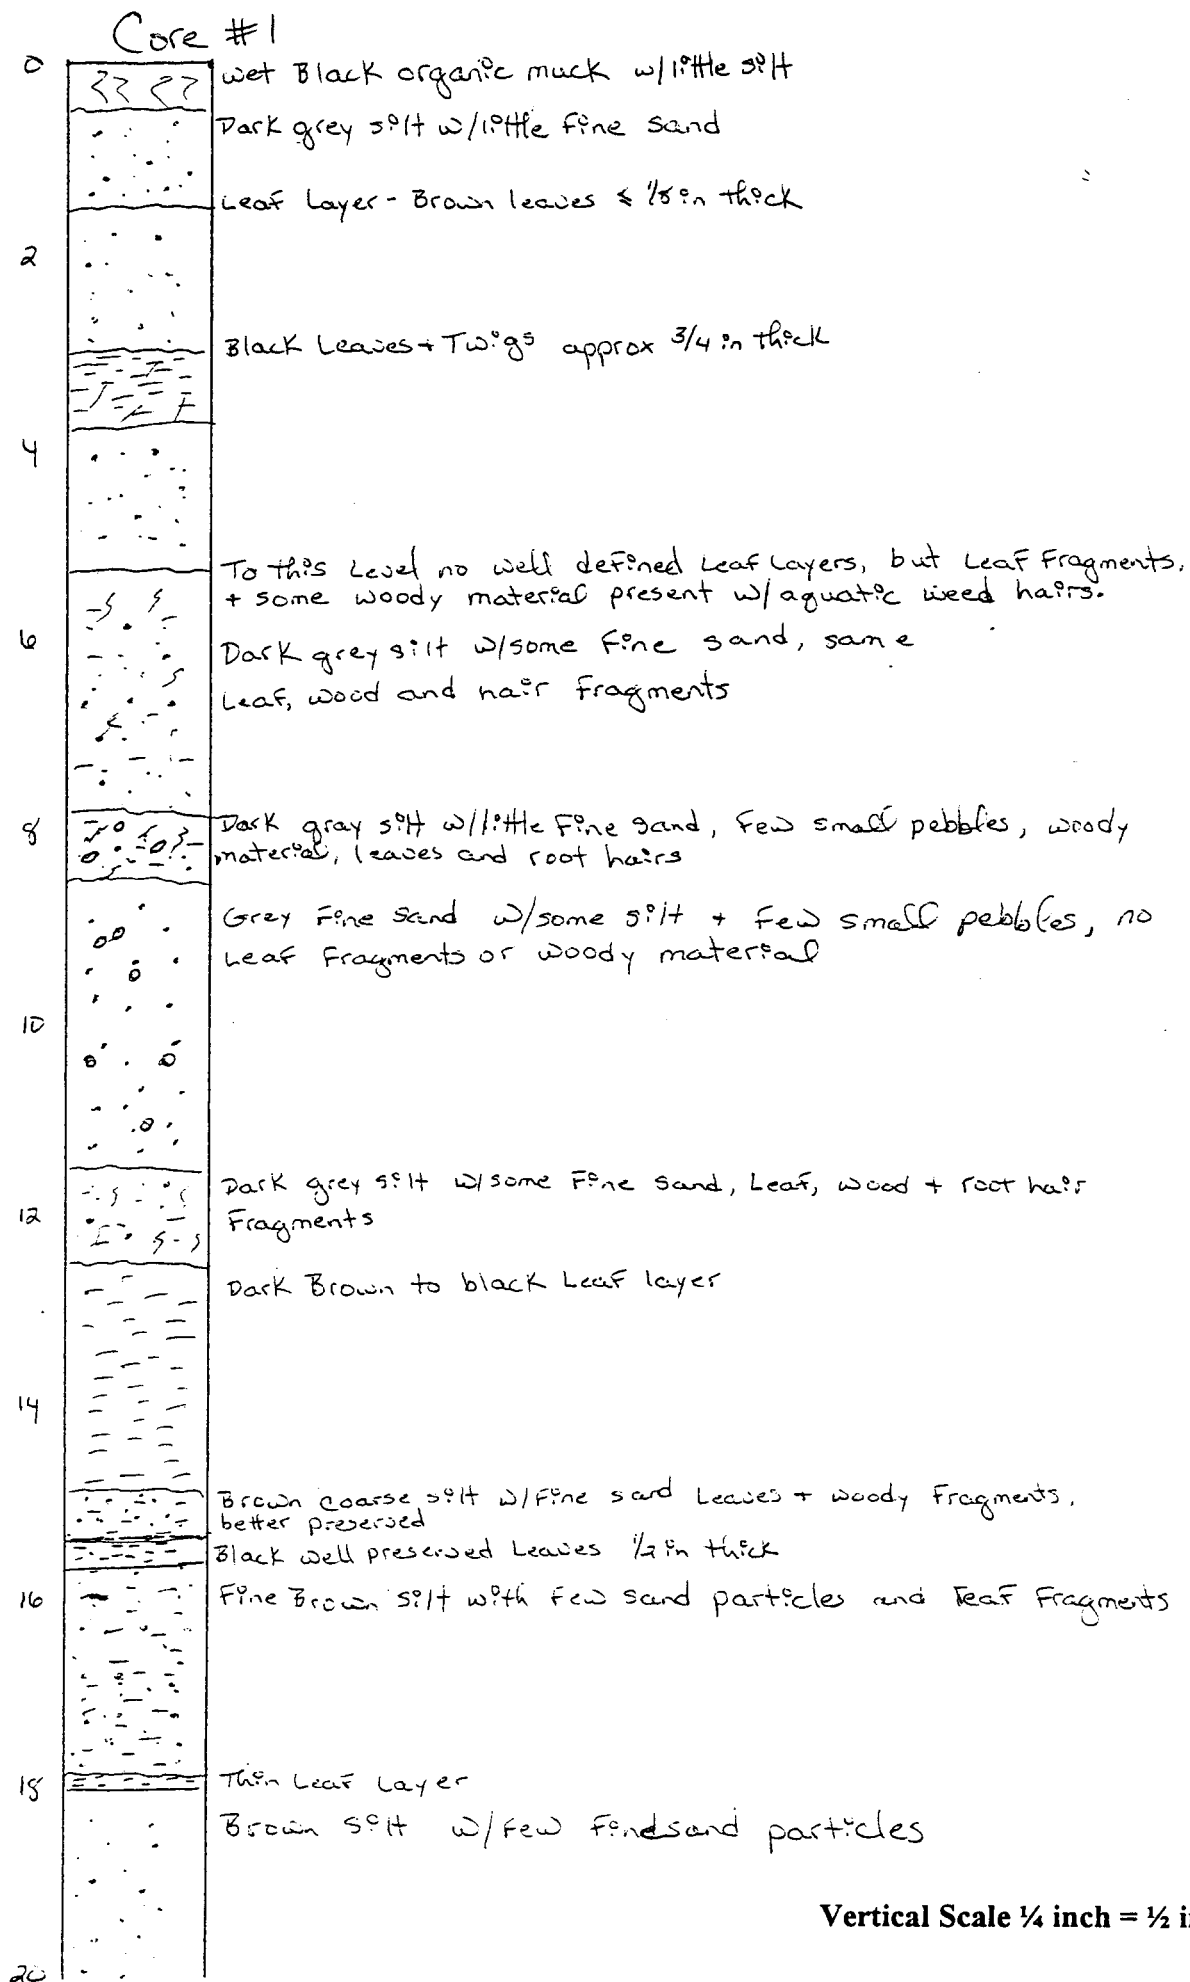 Core #1
0
wet Black organic muck w/little silt
Dark grey silt w/little fine sand
Leaf Layer - Brown leaves ≤ 1/8 in thick
2
Black Leaves + Twigs approx 3/4 in thick
4
To this Level no well defined Leaf Layers, but Leaf Fragments,
+ some woody material present w/aquatic weed hairs.
6
Dark grey silt w/some fine sand, same
Leaf, wood and hair fragments
8
Dark gray silt w/little fine sand, few small pebbles, woody
material, leaves and root hairs
Grey fine sand w/some silt + few small pebbles, no
Leaf fragments or woody material
10
Dark grey silt w/some fine sand, Leaf, wood + root hair
12
Fragments
Dark Brown to black Leaf layer
14
Brown coarse silt w/fine sand Leaves + woody fragments,
better preserved
Black well preserved Leaves 1/2 in thick
16
Fine Brown silt with few sand particles and leaf fragments
18
Thin Leaf Layer
Brown silt w/few fine sand particles
Vertical Scale ¼ inch = ½ i
20